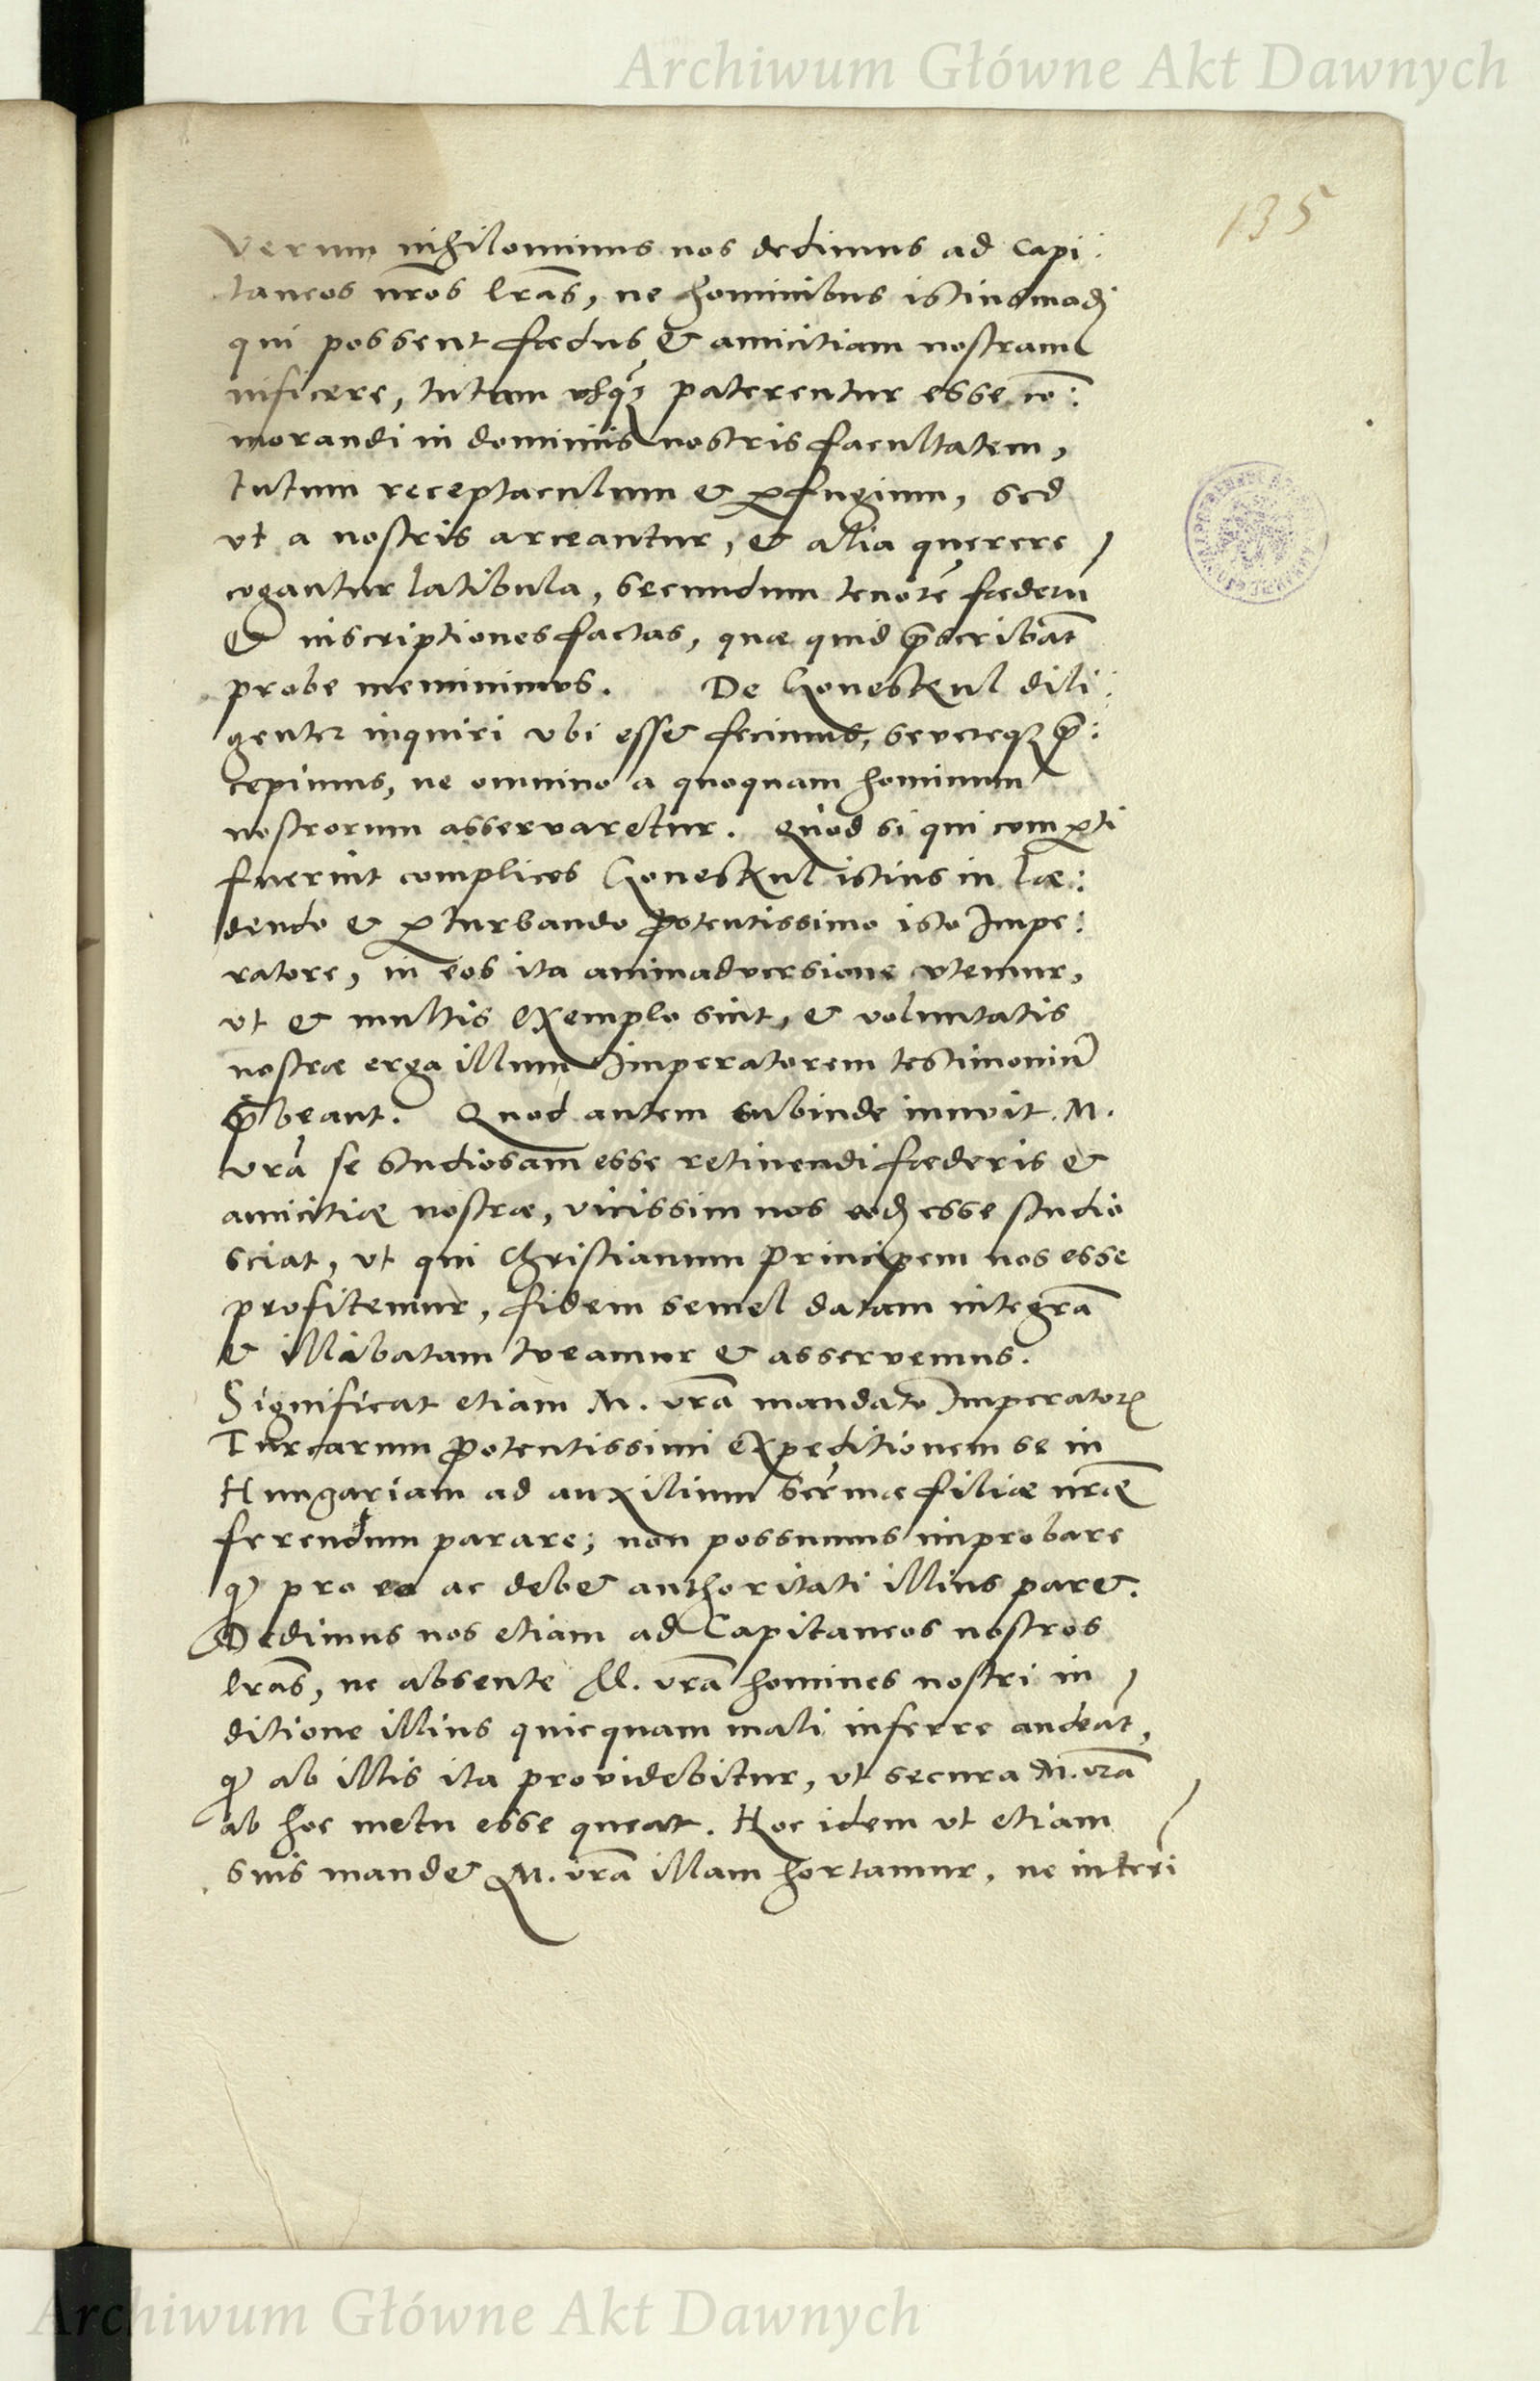 Archiwum Główne Akt Dawnych
135
Verum nihilominus nos dedimus ad Capi:
taneos nr̃os lr̃as, ne hominibus istiusmodj
qui possent fœdus & amicitiam nostram
inficere, tutam usq3 paterentur esse cõ:
morandi in dominiis nostris facultatem,
tutum receptaculum & ꝑfugium, sed
ut a nostris arceantur, & alia querere
cogantur latibula, secundum tenorẽ fœderũ
& inscriptiones factas, quæ quid p̃scribãt
probe meminimus. De Honeskul dili:
genter inquiri ubi esset fecimus, severeq3 p̃:
cepimus, ne omnino a quoquam hominum
nostrorum asservaretur. Quod si qui comꝑti
fuerint complices Honeskul istius in læ:
dendo & ꝑturbando Potentissimo isto Impe:
ratore, in eos ita animadversione utemur,
ut & multis exemplo sint, & voluntatis
nostræ erga illum Imperatorem testimoniũ
p̃beant. Quod autem subinde innuit M.
vr̃a se studiosam esse retinendi fœderis &
amicitiæ nostræ, vicissim nos eodẽ esse studio
sciat, ut qui Christianum Principem nos esse
profitemur, fidem semel datam integrã
& illibatam tueamur & asservemus.
Significat etiam M. vr̃a mandato Imperatoris
Turcarum Potentissimi expeditionem se in
Hungariam ad auxilium Ser̃mæ filiæ nr̃æ
ferendum parare; non possumus improbare
q̃ pro eo ac debet authoritati illius paret.
Dedimus nos etiam ad Capitaneos nostros
lr̃as, ne absente M. vr̃a homines nostri in
ditione illius quicquam mali inferre audeãt,
q̃ ab illis ita providebitur, ut secura M. vr̃a
ab hoc metu esse queat. Hoc idem ut etiam
suis mandet M. vr̃a illam hortamur, ne interi
Archiwum Główne Akt Dawnych